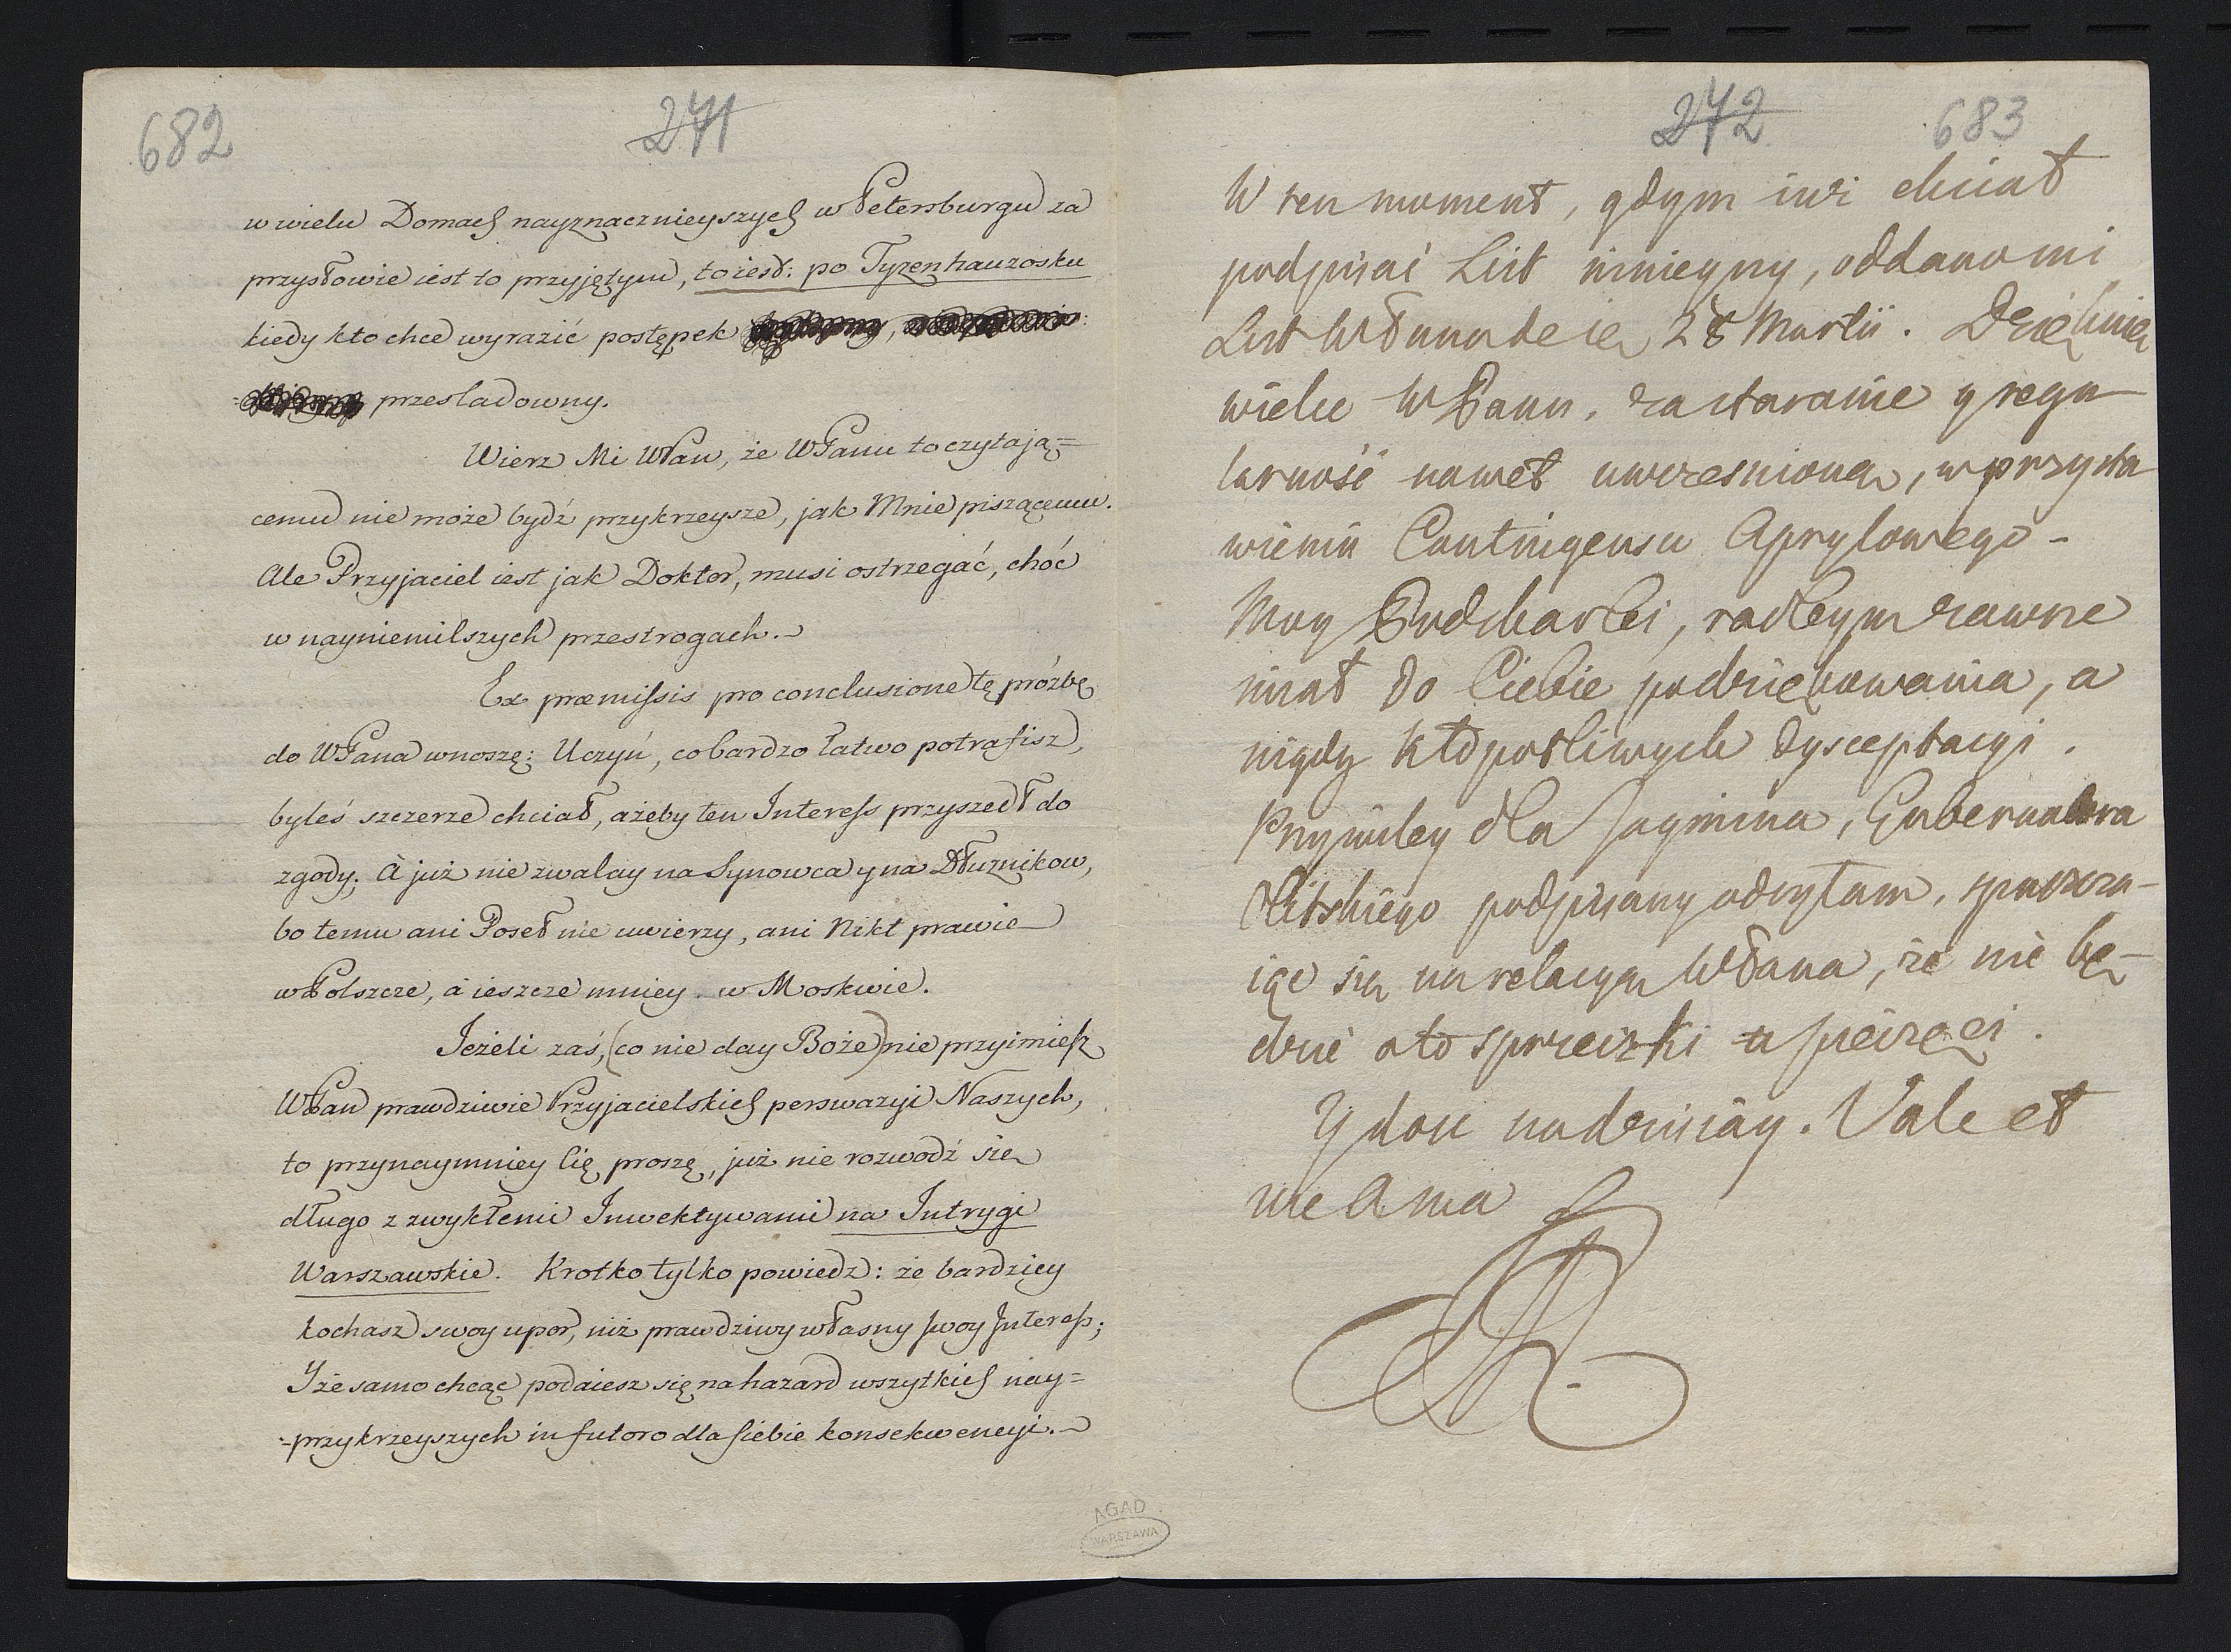 682
271
w wielu Domach nayznacznieyszych w Petersburgu za
przysłowie iest to przyjętym, to iest: po Tyzenhauzosku
kiedy kto chce wyrazić postępek
przesladowny.
Wierz Mi WPan, że WPanu to czytają=
cemu nie może bydź przykrzeysze, jak Mnie piszącemu.
Ale Przyjaciel iest jak Doktor, musi ostrzegać, choć
w nayniemilszych przestrogach.
Ex præmissis pro conclusione tę prózbę
do WPana wnoszę: Uczyń, co bardzo łatwo potrafisz,
byleś szczerze chciał, ażeby ten Interess przyszedł do
zgody; à już nie zwalay na Synowca y na Dłużnikow,
bo temu ani Poseł nie uwierzy, ani Nikt prawie
w Polszcze, à ieszcze mniey w Moskwie.
Jeżeli zaś, (co nie day Boże) nie przyimiesz
WPan prawdziwie Przyjacielskich perswazyi Naszych,
to przynaymniey Cię proszę, już nie rozwodź sie
długo z zwykłemi Inwektywami na Intrygi
Warszawskie. Krotko tylko powiedz: że bardziey
kochasz swoy upor, niż prawdziwy własny swoy Interess;
Y że samo chcąc podaiesz się na hazard wszytkich nay=
=przykrzeyszych in futoro dla siebie konsekwencyi.
AGAD
WARSZAWA
272
683
W ten moment, gdym iuż chciał
podpisać List ninieyszy, oddano mi
List WPana de 28 Martii. Dziękuię
wielce WPanu, za staranie y regu-
larność nawet uwczesnioną, w przysta
wieniu Contingensu Aprylowego -
Moy Podskarbi, radbym zawsze
miał do Ciebie podziękowania, a
nigdy kłopotliwych dysceptacyi.
Przywiley dla Jagmina, Gubernatora
podpisany odsyłam, spuszcza-
iąc się na relacyą WPana, że nie bę-
dzie o to sprzeczki
Vale et
me Ama
SAR